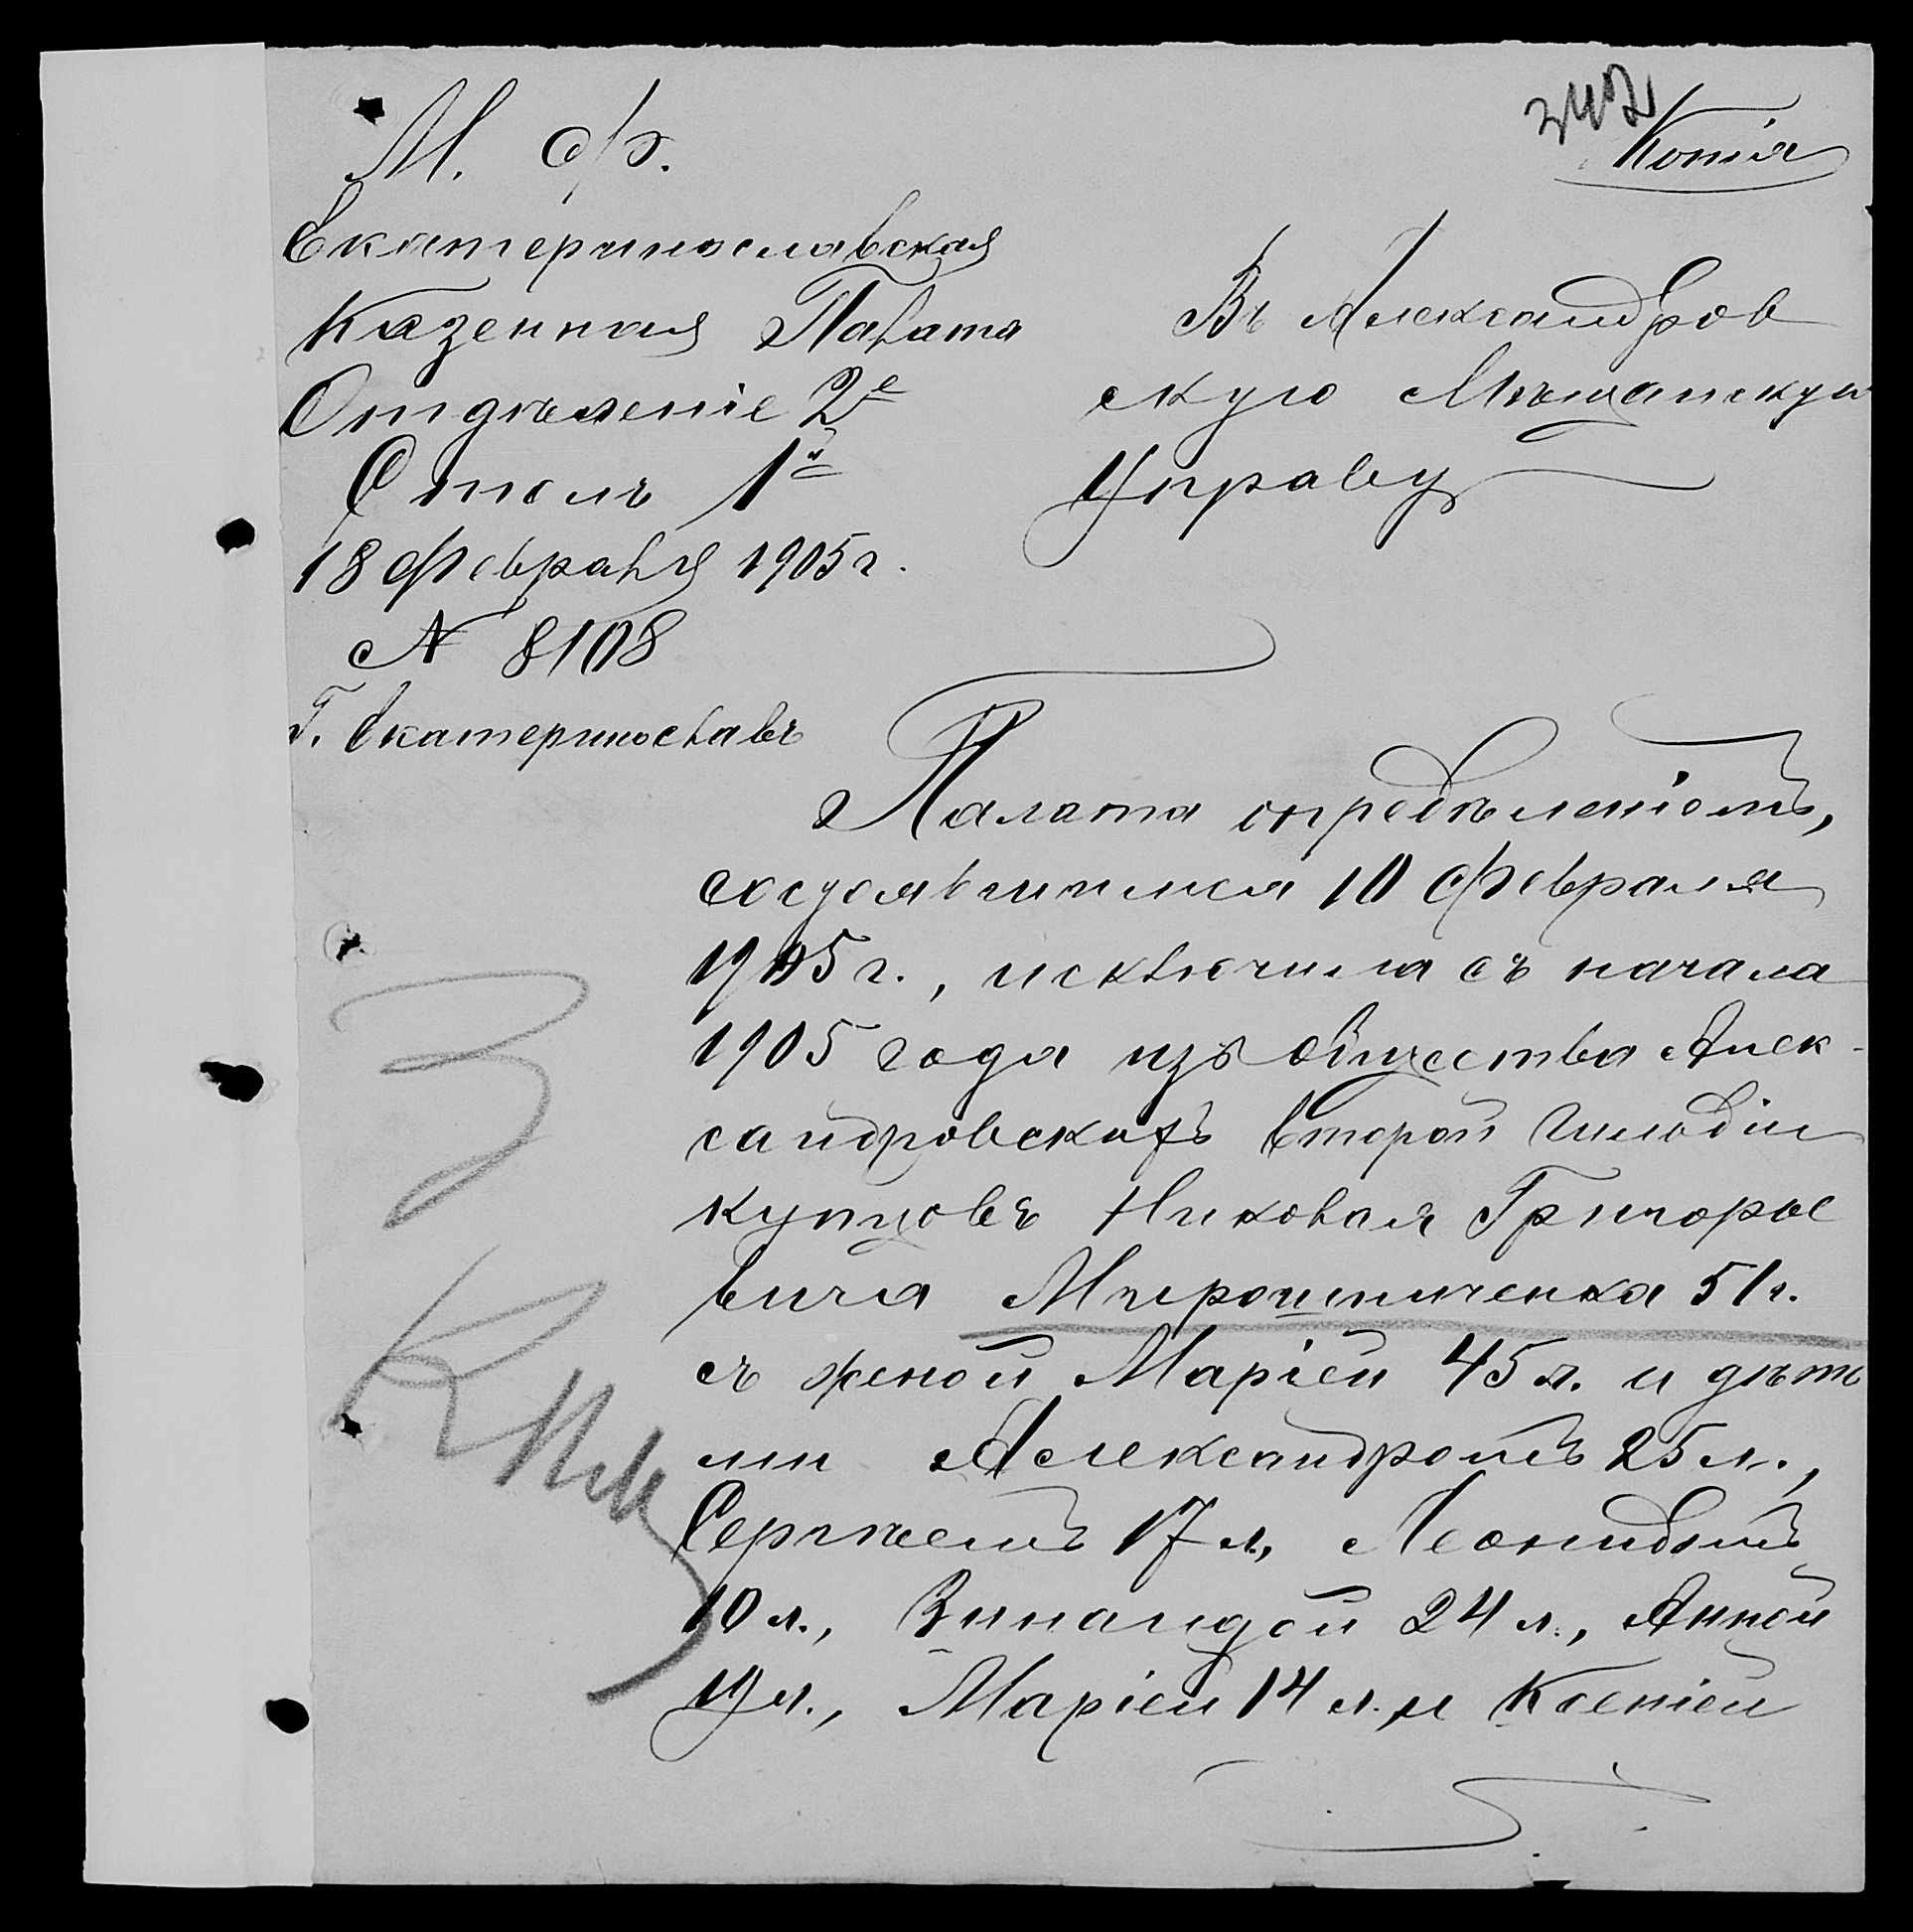 342
Копія
М. Ф.
Екатеринославская
Казенная Палата
Отдѣленіе 2е
Столъ 1й
18 Февраля 1905 г.
№ 8108
Г. Екатеринославъ
Въ Александров
скую Мѣщанскую
Управу
Палата опредѣленіемъ,
состоявшимся 10 Февраля
1905 г., исключила съ начала
1905 года изъ общества Алек-
сандровскихъ второй гильдіи
купцовъ Николая Григорье
вича Мирошниченка 51 г.
съ женой Маріей 45 л. и дѣть
ми Александромъ 25 л.,
Сергѣемъ 17 л., Леонидомъ
10 л., Зинаидой 24 л., Анной
19 л., Маріей 14 л., и Ксеніей